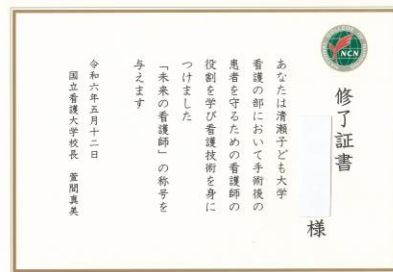 NCN
修了証書
様
あなたは清瀬子ども大学
看護の部において手術後の
患者を守るための看護師の
役割を学び看護技術を身に
つけました
「未来の看護師」の称号を
与えます
令和六年五月十二日
国立看護大学校長　萱間真美